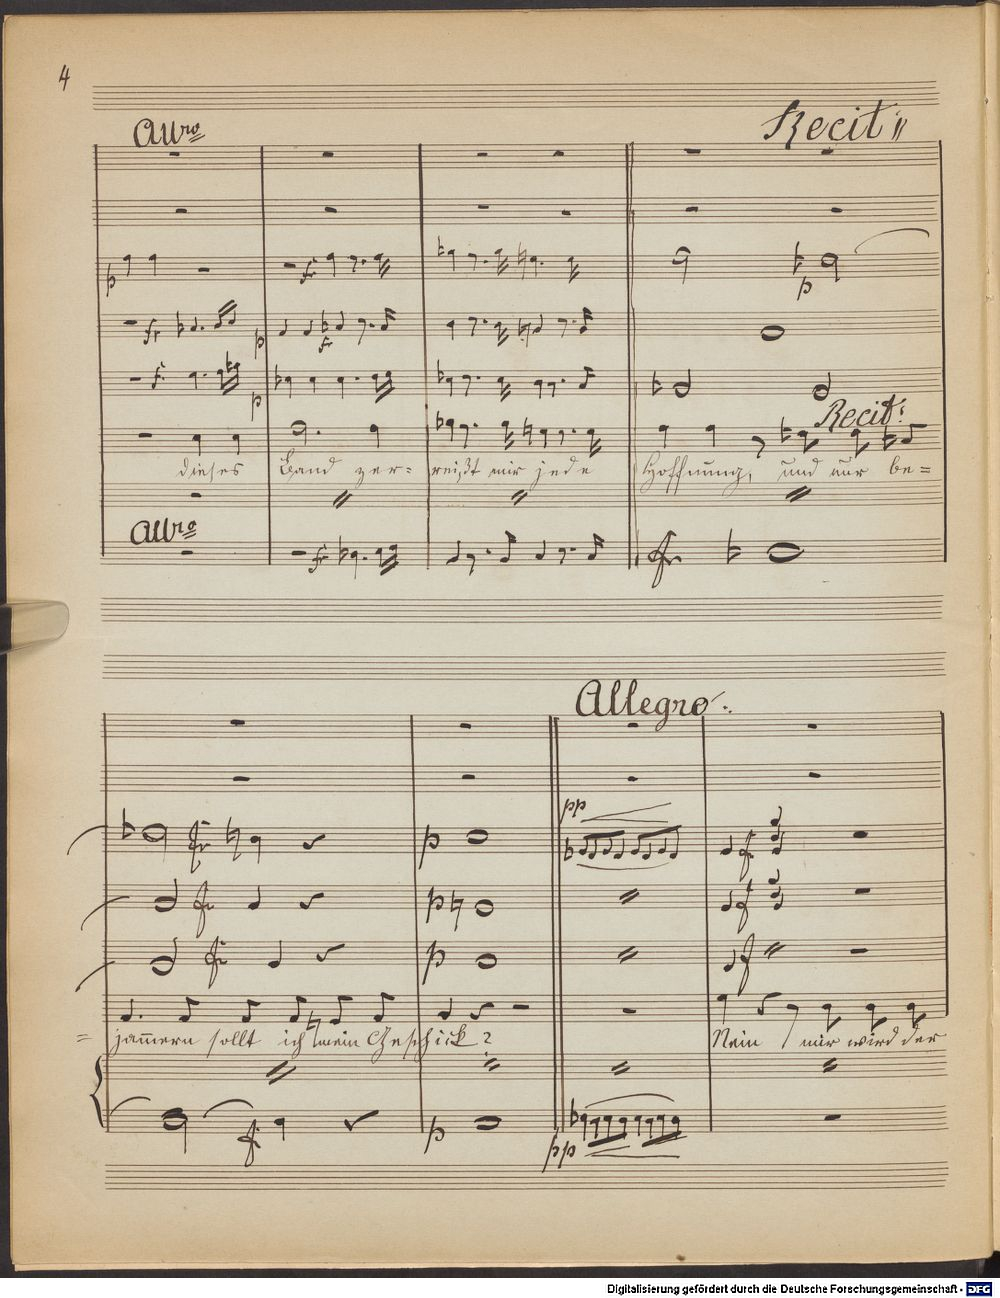 4
Allro
Recit:
Recit:
dieses Band zer= reißt mir jede Hoffnung, und nur be=
Allro
Allegro.
pp
=jam̄ern sollt ich mein Geschick? Nein mir wird der
pp
Digitalisierung gefördert durch die Deutsche Forschungsgemeinschaft - DFG